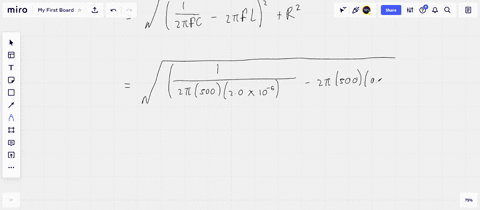 miro My First Board Share
= √((1/2πfC - 2πfL)² + R²
= √((1/2π(500)(2.0 × 10⁻⁶) - 2π(500)(0.
75%